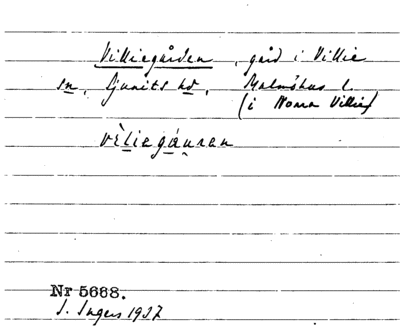 Villiegården, gård i Villie
sn, Ljunits hd, Malmöhus l.
(i Norra Villie)
vèliegáuren
Nr 5668.
I. Ingers 1927